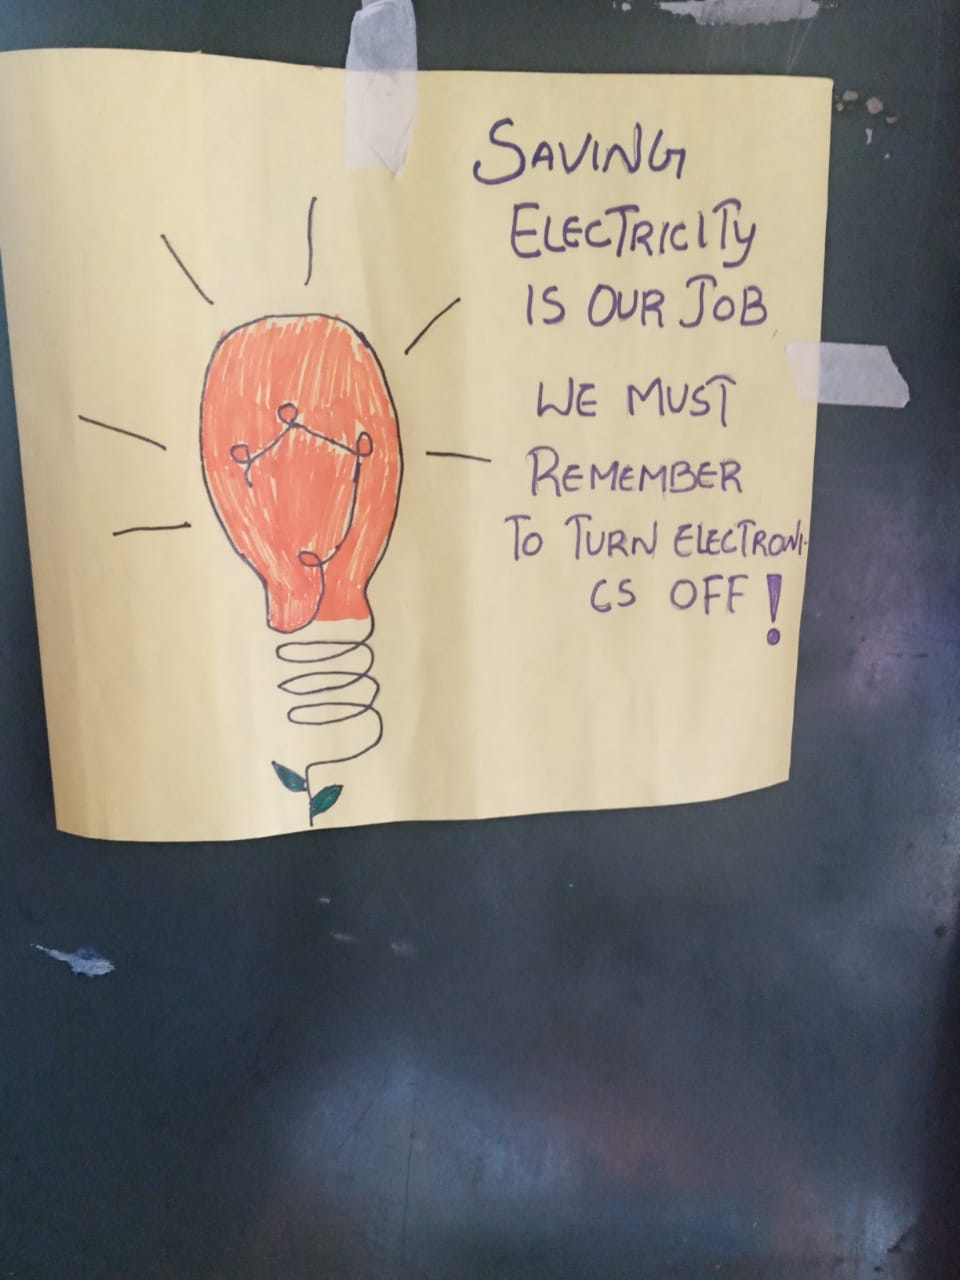 SAVING
ELECTRICITY
IS OUR JOB
WE MUST
REMEMBER
TO TURN ELECTRONI-
CS OFF!